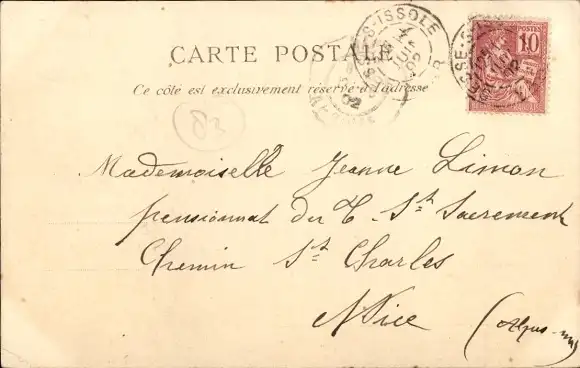 CARTE POSTALE
Ce côté est exclusivement réservé à l'adresse
83
POSTES
10
S-ISSOLE
4
JUIN
02
Mademoiselle Jeanne Limon
pensionnat du T. St Sacrement
Chemin St Charles
Nice